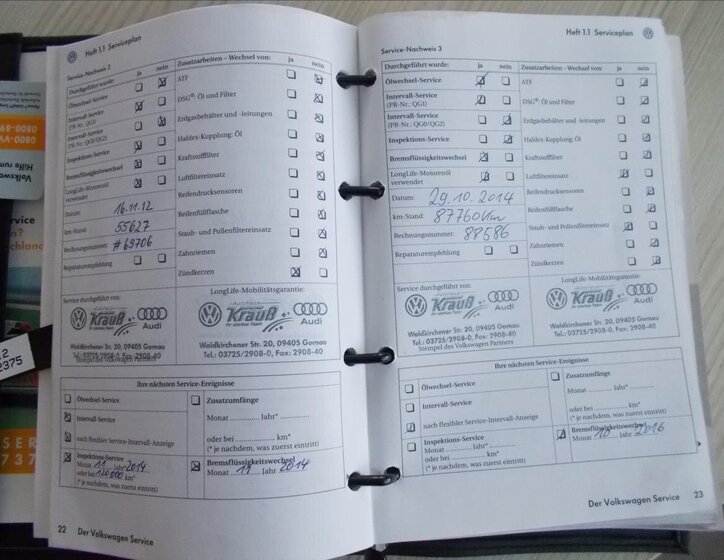 Heft 1.1 Serviceplan
Service-Nachweis 2
Durchgeführt wurde: ja nein
Ölwechsel-Service
Intervall-Service
(PR-Nr.: QG1)
Intervall-Service
(PR-Nr.: QG0/QG2)
Inspektions-Service
Bremsflüssigkeitswechsel
LongLife-Motorenöl
verwendet
Datum: 16.11.12
km-Stand: 55627
Rechnungsnummer: #69706
Reparaturempfehlung
Zusatzarbeiten – Wechsel von: ja nein
ATF
DSG®: Öl und Filter
Erdgasbehälter und -leitungen
Haldex-Kupplung: Öl
Kraftstofffilter
Luftfiltereinsatz
Reifendrucksensoren
Reifenfüllflasche
Staub- und Pollenfiltereinsatz
Zahnriemen
Zündkerzen
Service durchgeführt von:
Autohaus
Krauß
Ihr starkes Team
Audi
Waldkirchener Str. 20, 09405 Gornau
Tel.: 03725/2908-0, Fax: 2908-40
Stempel des Volkswagen Partners
LongLife-Mobilitätsgarantie:
Autohaus
Krauß
Ihr starkes Team
Audi
Waldkirchener Str. 20, 09405 Gornau
Tel.: 03725/2908-0, Fax: 2908-40
Ihre nächsten Service-Ereignisse
Ölwechsel-Service
Intervall-Service
nach flexibler Service-Intervall-Anzeige
Inspektions-Service
Monat 11 Jahr 2014
oder bei 120000 km*
(* je nachdem, was zuerst eintritt)
Zusatzumfänge
Monat Jahr*
oder bei km*
(* je nachdem, was zuerst eintritt)
Bremsflüssigkeitswechsel
Monat 11 Jahr 2014
22 Der Volkswagen Service
Heft 1.1 Serviceplan
Service-Nachweis 3
Durchgeführt wurde: ja nein
Ölwechsel-Service
Intervall-Service
(PR-Nr.: QG1)
Intervall-Service
(PR-Nr.: QG0/QG2)
Inspektions-Service
Bremsflüssigkeitswechsel
LongLife-Motorenöl
verwendet
Datum: 29.10.2014
km-Stand: 87760 km
Rechnungsnummer: 88586
Reparaturempfehlung
Zusatzarbeiten – Wechsel von: ja nein
ATF
DSG®: Öl und Filter
Erdgasbehälter und -leitungen
Haldex-Kupplung: Öl
Kraftstofffilter
Luftfiltereinsatz
Reifendrucksensoren
Reifenfüllflasche
Staub- und Pollenfiltereinsatz
Zahnriemen
Zündkerzen
Service durchgeführt von:
Krauß
Ihr starkes Team
Audi
Waldkirchener Str. 20, 09405 Gornau
Tel.: 03725/2908-0, Fax: 2908-40
Stempel des Volkswagen Partners
LongLife-Mobilitätsgarantie:
Krauß
Ihr starkes Team
Audi
Waldkirchener Str. 20, 09405 Gornau
Tel.: 03725/2908-0, Fax: 2908-40
Ihre nächsten Service-Ereignisse
Ölwechsel-Service
Intervall-Service
nach flexibler Service-Intervall-Anzeige
Inspektions-Service
Monat Jahr*
oder bei km*
(* je nachdem, was zuerst eintritt)
Zusatzumfänge
Monat Jahr*
oder bei km*
(* je nachdem, was zuerst eintritt)
Bremsflüssigkeitswechsel
Monat 10 Jahr 2016
Der Volkswagen Service 23
0800-89
0800-V
Volksw
Hilfe run
2375
SER
737